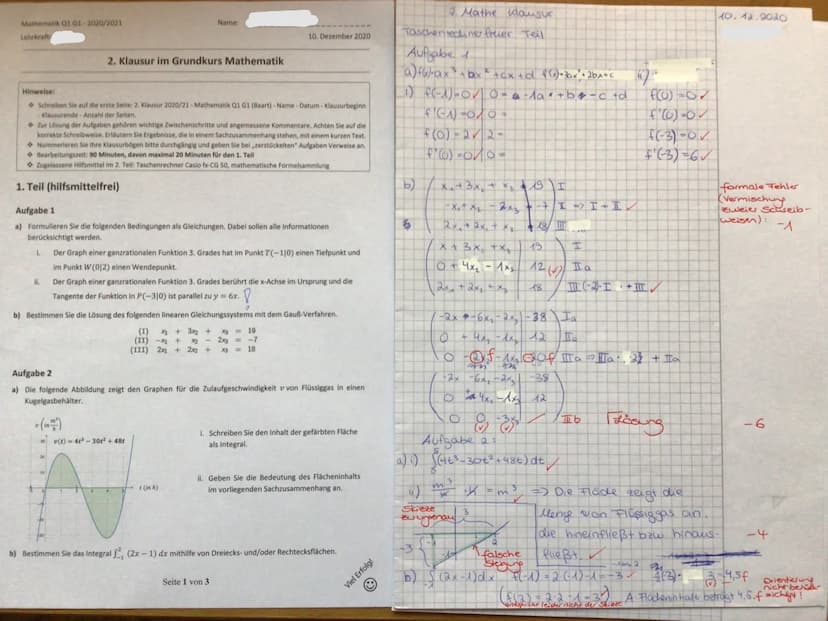 Mathematik Q1 G1 - 2020/2021
Name:
Lehrkraft
10. Dezember 2020
2. Klausur im Grundkurs Mathematik
Hinweise:
❖ Schreiben Sie auf die erste Seite: 2. Klausur 2020/21 - Mathematik Q1 G1 (Baart) - Name - Datum - Klausurbeginn
- Klausurende - Anzahl der Seiten.
❖ Zur Lösung der Aufgaben gehören wichtige Zwischenschritte und angemessene Kommentare. Achten Sie auf die
korrekte Schreibweise. Erläutern Sie Ergebnisse, die in einem Sachzusammenhang stehen, mit einem kurzen Text.
❖ Nummerieren Sie Ihre Klausurbögen bitte durchgängig und geben Sie bei „zerstückelten" Aufgaben Verweise an.
❖ Bearbeitungszeit: 90 Minuten, davon maximal 20 Minuten für den 1. Teil
❖ Zugelassene Hilfsmittel im 2. Teil: Taschenrechner Casio fx-CG 50, mathematische Formelsammlung
1. Teil (hilfsmittelfrei)
Aufgabe 1
a) Formulieren Sie die folgenden Bedingungen als Gleichungen. Dabei sollen alle Informationen
berücksichtigt werden.
i. Der Graph einer ganzrationalen Funktion 3. Grades hat im Punkt T(-1|0) einen Tiefpunkt und
im Punkt W(0|2) einen Wendepunkt.
ii. Der Graph einer ganzrationalen Funktion 3. Grades berührt die x-Achse im Ursprung und die
Tangente der Funktion in P(-3|0) ist parallel zu y = 6x.
b) Bestimmen Sie die Lösung des folgenden linearen Gleichungssystems mit dem Gauß-Verfahren.
(I) x₁ + 3x₂ + x₃ = 19
(II) -x₁ + x₂ - 2x₃ = -7
(III) 2x₁ + 2x₂ + x₃ = 18
Aufgabe 2
a) Die folgende Abbildung zeigt den Graphen für die Zulaufgeschwindigkeit v von Flüssiggas in einen
Kugelgasbehälter.
v (in m³/h)
v(t) = 4t³ - 30t² + 48t
t (in h)
i. Schreiben Sie den Inhalt der gefärbten Fläche
als Integral.
ii. Geben Sie die Bedeutung des Flächeninhalts
im vorliegenden Sachzusammenhang an.
b) Bestimmen Sie das Integral ∫₋₁² (2x - 1) dx mithilfe von Dreiecks- und/oder Rechtecksflächen.
Viel Erfolg! ☺
Seite 1 von 3
2. Mathe Klausur
10.12.2020
Taschenrechner freier Teil
Aufgabe 1
a) f(x)=ax³+bx²+cx+d f'(x)=3ax²+2bx+c ii)
i) f(-1)=0 ✓ 0 = -1a + b - c + d f(0)=0 ✓
f'(-1)=0 ✓ 0 = f'(0)=0 ✓
f(0)=2 ✓ 2 = f(-3)=0 ✓
f''(0)=0 ✓ 0 = f'(-3)=6 ✓
b) x₁+3x₂+x₃ 19 I
-x₁+x₂-2x₃ -7 I => I + II ✓
2x₁+2x₂+x₃ 18 III
formale Fehler
(Vermischung
zweier Schreib-
weisen):
-1
x+3x₂+x₃ 19 I
0+4x₂-1x₃ 12 (✓) IIa
2x₁+2x₂+x₃ 18 III (-2)·I + III ✓
-2x-6x₂-2x₃ -38 Ia
0+4x₂-1x₃ 12 IIa
0 f -1x₃ f IIIa => IIIa · + IIa
-2x -6x₂-2x₃ -38
0 4x₂-1x₃ 12
0 0 -3x₃ IIb
Lösung
-6
Aufgabe 2:
a) i) ∫(4t³-30t²+48t)dt ✓
ii) m³/h · h = m³ => Die Fläche zeigt die
Menge von Flüssiggas an,
die hineinfließt bzw hinaus-
fließt. ✓
-4
Skizze
zu ungenau
3
2
-3
falsche
Steigung
b) ∫(2x-1)dx f(-1)=2·(-1)-1=-3 ✓
(f(2)=2·2-1=3 ✓) A: Flächeninhalt beträgt 4,5. f
Orientierung
nicht berück-
sichtigt!